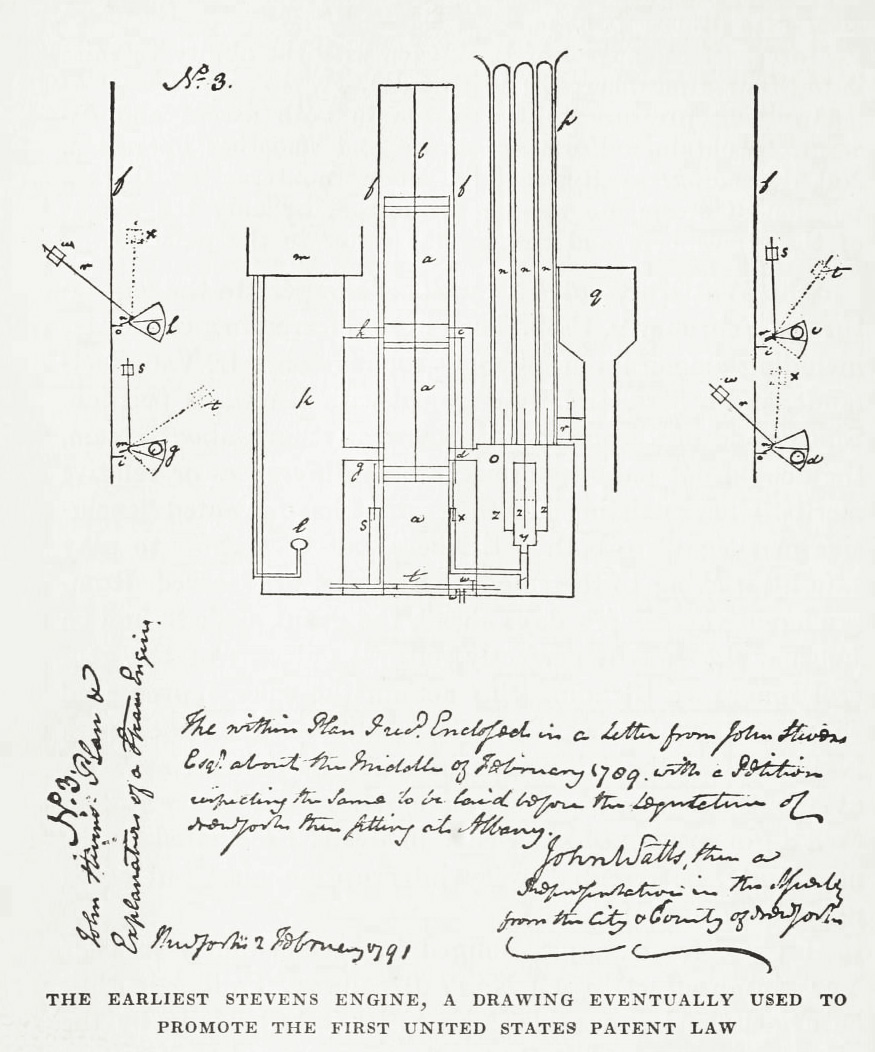 No. 3.
f
b
p
f
f
f
m
a
n
n
n
q
w
r
x
s
t
o
l
h
c
i
c
s
t
k
a
r
w
x
r
m
i
g
g
d
o
o
d
l
s
a
x
z
z
z
y
t
w
The within Plan I recd. Enclosed in a Letter from John Stevens
Esqr. about the Middle of February 1789. with a Petition
respecting the Same to be laid before the Legislature of
New York then sitting at Albany.
John Watts, then a
Representative in the Assembly
from the City & County of New York
New York 2 February 1791
No. 3.
John Stevens' Plan &
Explanation of a Steam Engine.
THE EARLIEST STEVENS ENGINE, A DRAWING EVENTUALLY USED TO
PROMOTE THE FIRST UNITED STATES PATENT LAW